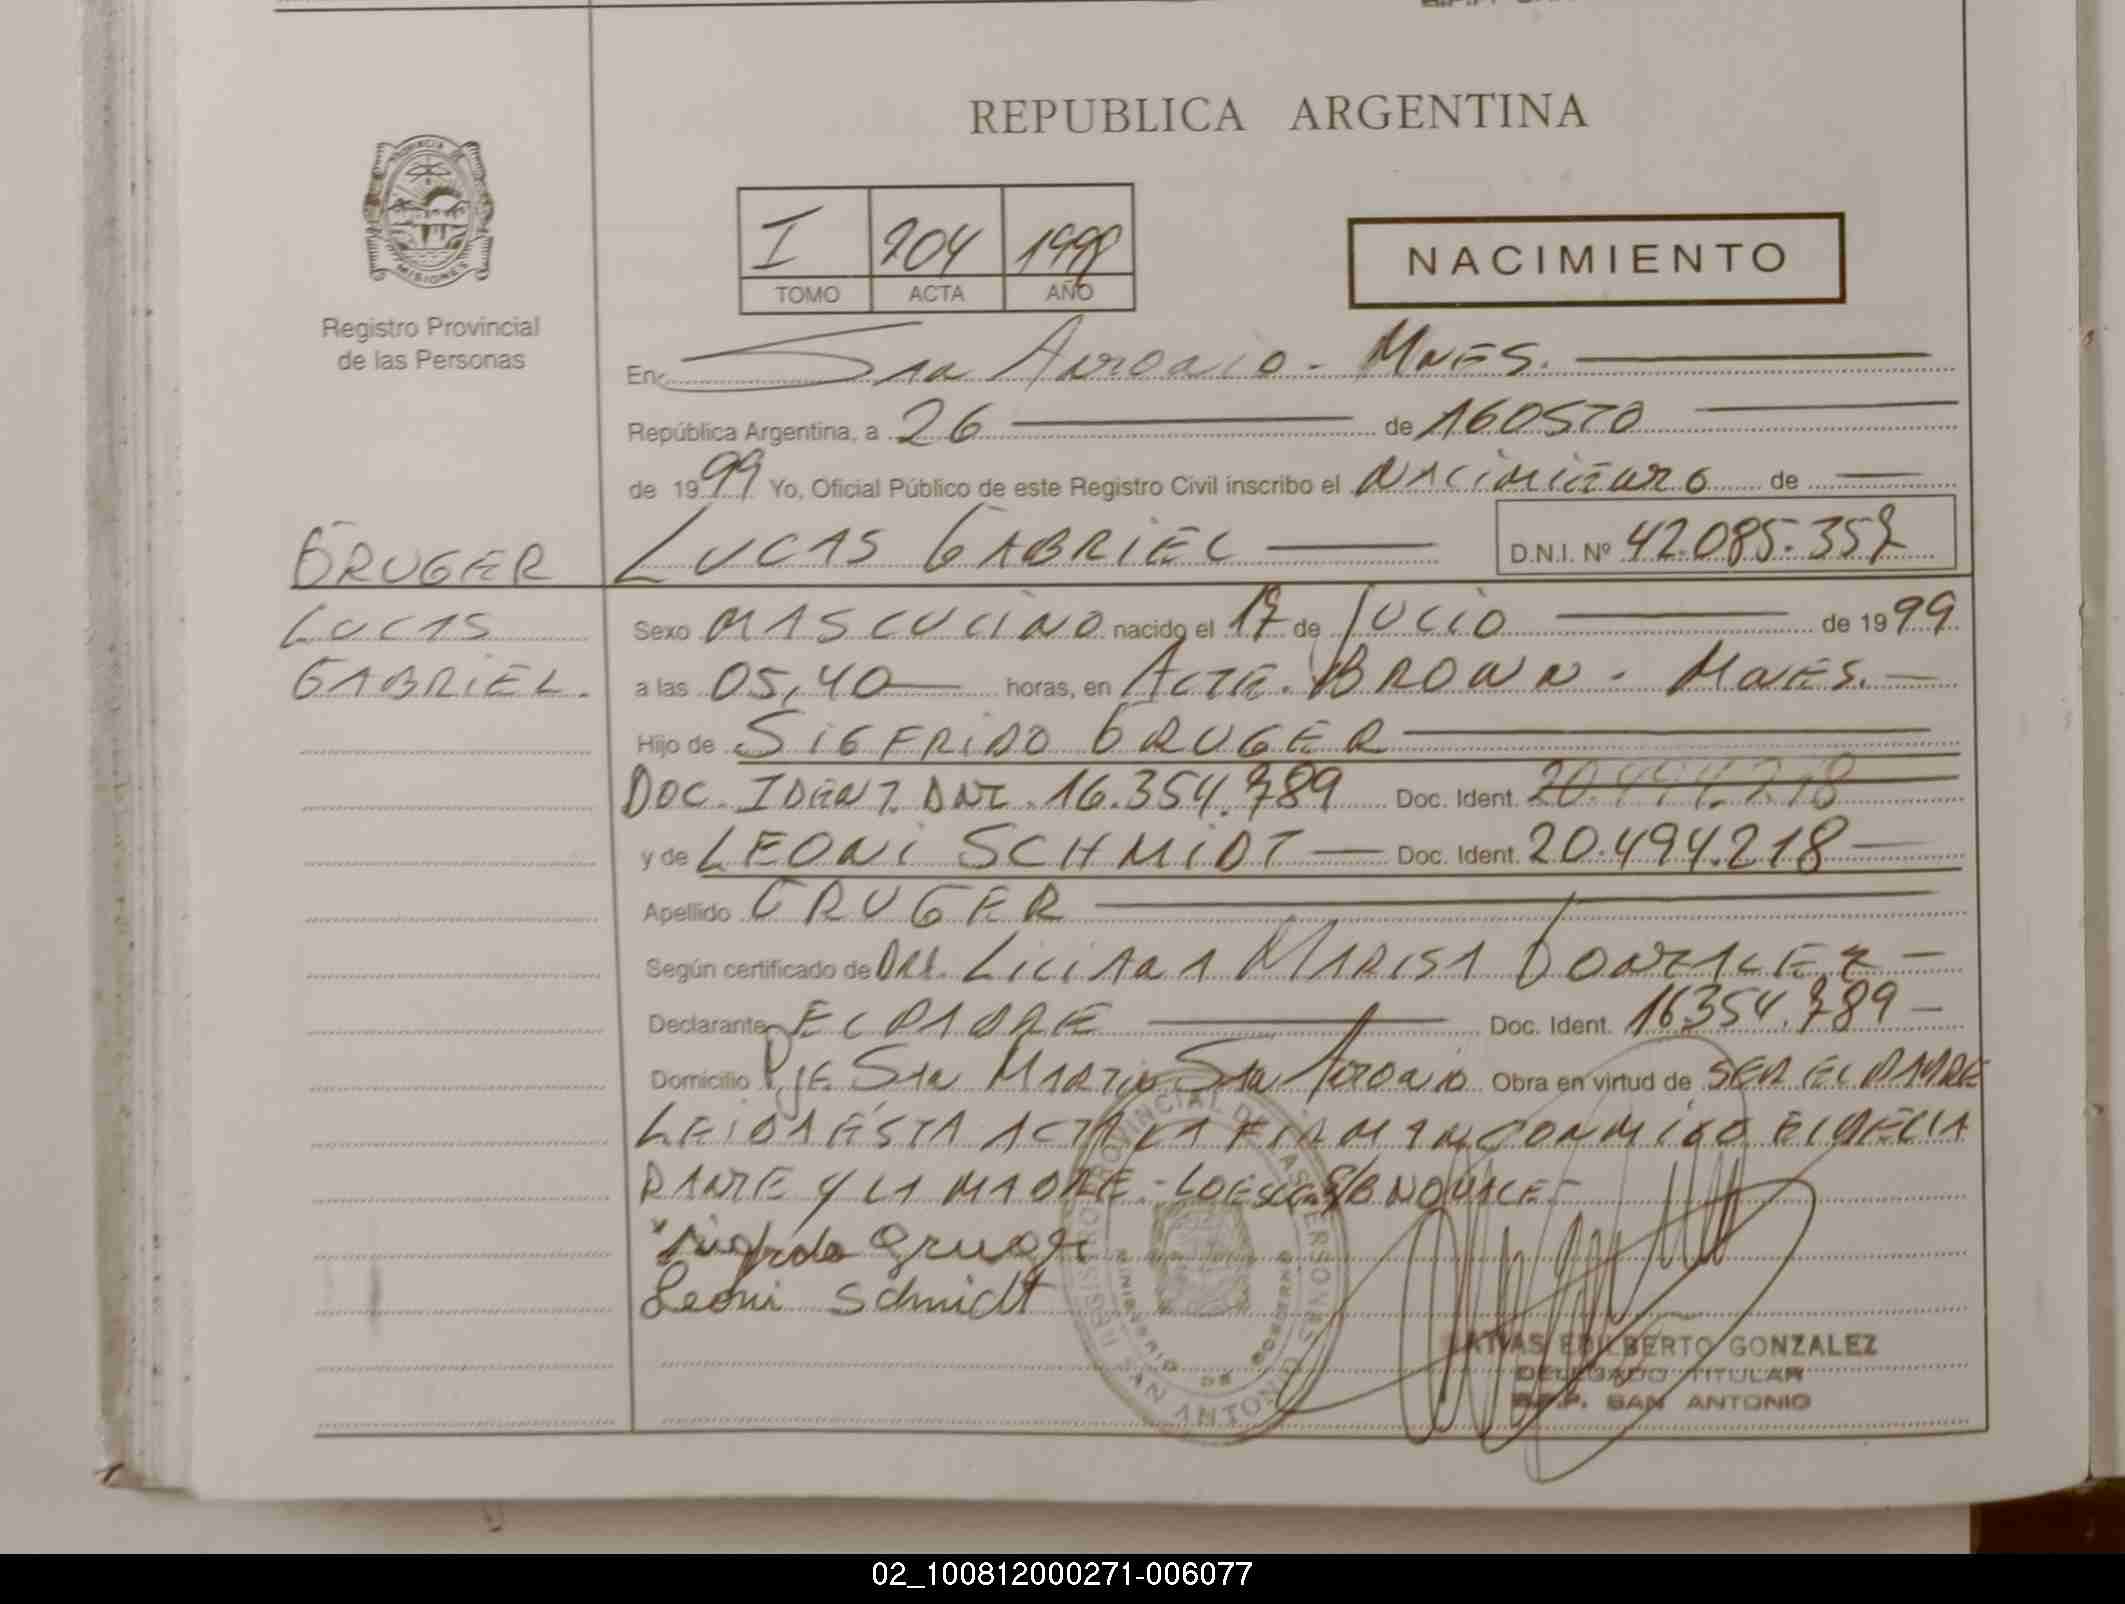 REPUBLICA ARGENTINA
PROVINCIA DE
MISIONES
Registro Provincial
de las Personas
I 204 1999
TOMO ACTA AÑO
NACIMIENTO
En San Antonio - MNES.
República Argentina, a 26 de AGOSTO
de 1999 Yo, Oficial Público de este Registro Civil inscribo el NACIMIENTO de
GRUGER
LUCAS GABRIEL D.N.I. Nº 42.085.357
LUCAS
GABRIEL.
Sexo MASCULINO nacido el 17 de JULIO de 1999
a las 05,40 horas, en ALTE. BROWN - MNES.
Hijo de SIGFRIDO GRUGER
DOC. IDENT. DNI. 16.354.789 Doc. Ident. 20.494.218
y de LEONI SCHMIDT Doc. Ident. 20.494.218
Apellido GRUGER
Según certificado de DRA. LILIANA MARISA GONZALEZ
Declarante EL PADRE Doc. Ident. 16.354.789
Domicilio PJE. SAN MARTIN SAN ANTONIO Obra en virtud de SER EL PADRE
LEIDA ÉSTA ACTA LA FIRMAN CONMIGO EL DECLA
RANTE Y LA MADRE.-
Sigfrido Gruger
Leoni Schmidt
MATIAS EDILBERTO GONZALEZ
DELEGADO TITULAR
R.P.P. SAN ANTONIO
02_100812000271-006077